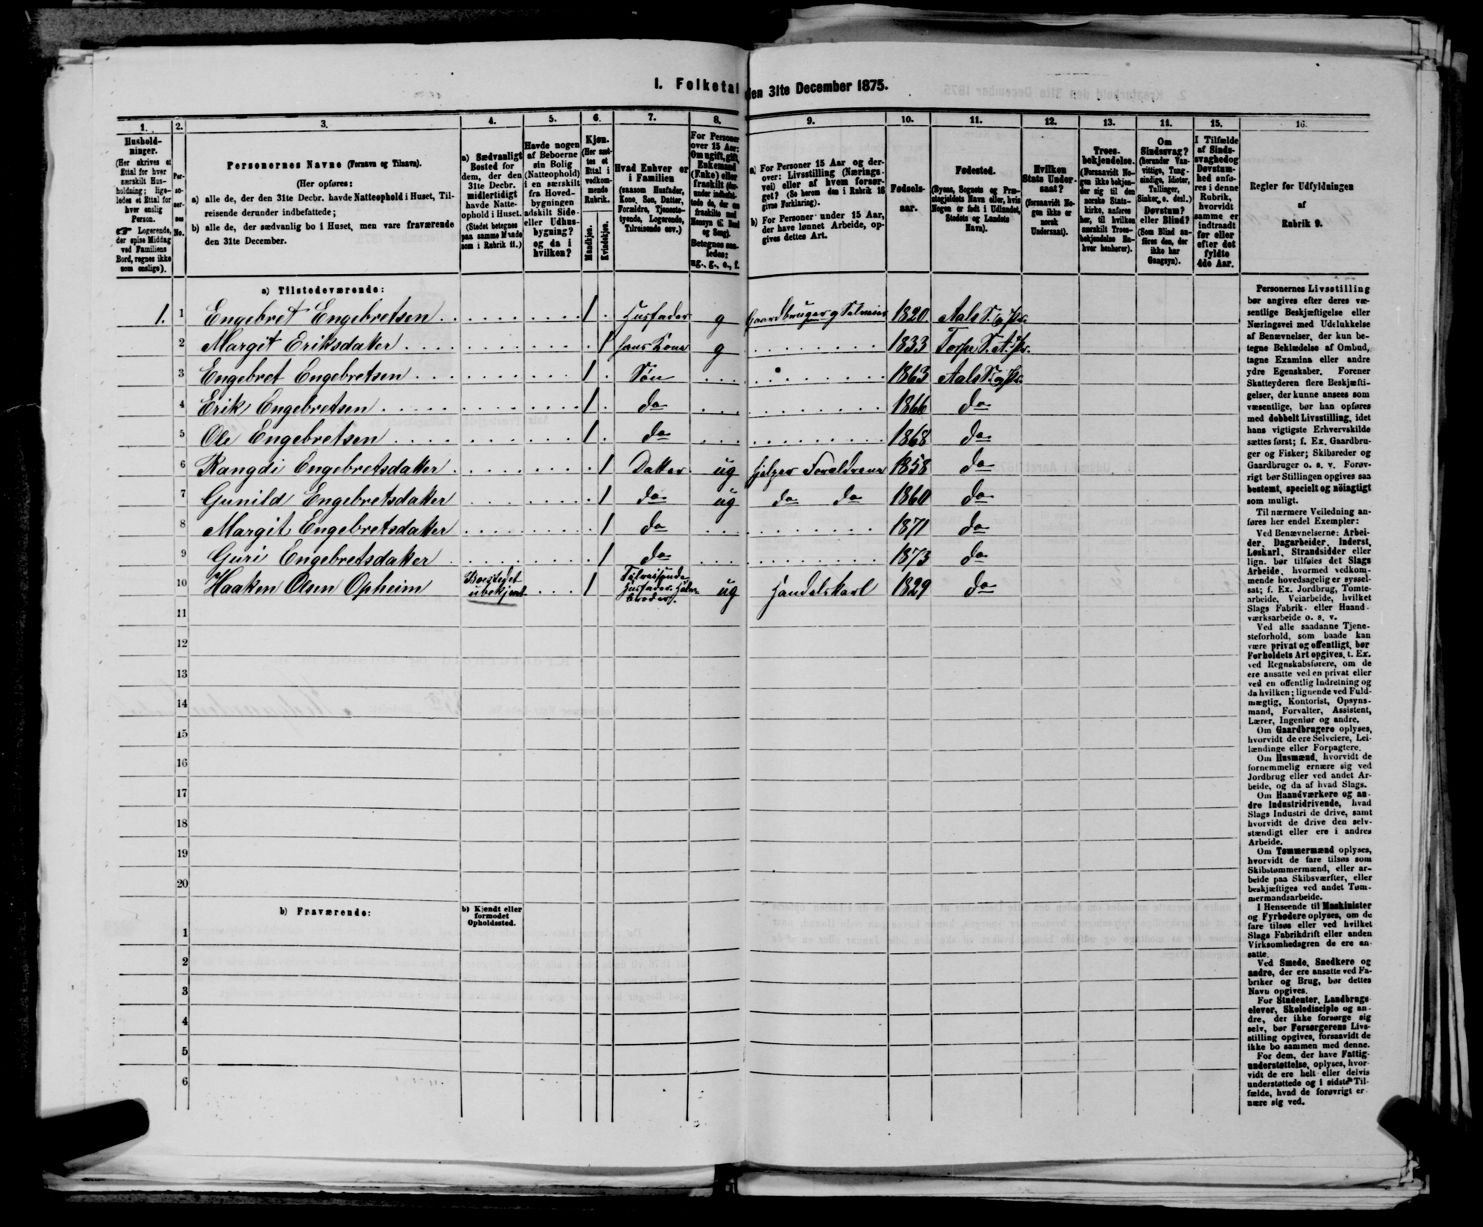 I. Folketal den 31te December 1875.
1. 2. 3. 4. 5. 6. 7. 8. 9. 10. 11. 12. 13. 14. 15. 16.
Hushold-
ninger.
(Her skrives et
Ettal for hver
særskilt Hus-
holdning; lige-
ledes et Ettal for
hver enslig
Person.
☞ Logerende,
der spise Middag
ved Familiens
Bord, regnes ikke
som enslige).
Per-
so-
ner-
nes
No.
Personernes Navne (Fornavn og Tilnavn).
(Her opføres:
a) alle de, der den 31te Decbr. havde Natteophold i Huset, Til-
reisende derunder indbefattede;
b) alle de, der sædvanlig bo i Huset, men vare fraværende
den 31te December.
a) Sædvanligt
Bosted for
dem, der den
31te Decbr.
midlertidigt
havde Natte-
ophold i Huset.
(Stedet betegnes
paa samme Maade
som i Rubrik 11.)
Havde nogen
af Beboerne
sin Bolig
(Natteophold)
i en særskilt
fra Hoved-
bygningen
adskilt Side-
eller Udhus-
bygning?
og da i
hvilken?
Kjøn.
(Her sæt-
tes et
Ettal i
vedkom-
mende
Rubrik.
Mandkjøn.
Kvindekjøn.
Hvad Enhver er
i Familien
(saasom Husfader,
Kone, Søn, Datter,
Forældre, Tjeneste-
tyende, Logerende,
Tilreisende osv.)
For Personer
over 15 Aar:
Om ugift, gift,
Enkemand
(Enke) eller
fraskilt
Betegnes saa-
ledes:
ug., g., e., f.
a) For Personer 15 Aar og der-
over: Livsstilling (Nærings-
vei) eller af hvem forsør-
get? (Se herom den i Rubrik 16
givne Forklaring).
b) For Personer under 15 Aar,
der have lønnet Arbeide, op-
gives dettes Art.
Fødsels-
aar.
Fødested.
(Byens, Sognets og Præ-
stegjeldets Navn eller, hvis
Nogen er født i Udlandet,
Stedets og Landets
Navn).
Hvilken
Stats Under-
saat?
(forsaavidt No-
gen ikke er
norsk
Undersaat).
Troes-
bekjendelse.
(Forsaavidt No-
gen ikke bekjen-
der sig til den
norske Stats-
kirke, anføres
her, til hvilken
særskilt Troes-
bekjendelse He-
hver henhører).
Om
Sindssvag?
(herunder Van-
vittige, Tung-
sindige, Idioter,
Tullinger,
Sinker, o. desl.)
Døvstum?
eller Blind?
(Som Blind an-
føres den, der
ikke har
Gangsyn).
I Tilfælde
af Sinds-
svaghed og
Døvstum-
hed anfø-
res i denne
Rubrik,
hvorvidt
samme er
indtraadt
før eller
efter det
fyldte
4de Aar.
Regler for Udfyldningen
af
Rubrik 9.
a) Tilstedeværende:
1. 1 Engebret Engebretsen 1 Husfader g Gaardbruger og Selveier 1820 Aals S. og Pr.
2 Margit Eriksdatter 1 hans Kone g 1833 Torpe S. A. Pr.
3 Engebret Engebretsen 1 Søn 1863 Aals S. og Pr.
4 Erik Engebretsen 1 do 1866 do
5 Ole Engebretsen 1 do 1868 do
6 Rangdi Engebretsdatter 1 Datter ug hjelper Forældrene 1858 do
7 Gunild Engebretsdatter 1 do ug do do 1860 do
8 Margit Engebretsdatter 1 do 1871 do
9 Guri Engebretsdatter 1 do 1873 do
10 Haaken Olsen Opheim Bostedet ubekjent 1 Tilreisende Husfaders Halv-broder ug Handelskarl 1829 do
11
12
13
14
15
16
17
18
19
20
b) Fraværende:
b) Kjendt eller
formodet
Opholdssted.
1
2
3
4
5
6
Personernes Livsstilling
bør angives efter deres væ-
sentlige Beskjæftigelse eller
Næringsvei med Udelukkelse
af Benævnelser, der kun be-
tegne Beklædelse af Ombud,
tagne Examina eller andre
ydre Egenskaber. Forener
Skatteyderen flere Beskjæfti-
gelser, der kunne ansees som
væsentlige, bør han opføres
med dobbelt Livsstilling, idet
hans vigtigste Erhvervskilde
sættes først; f. Ex. Gaardbru-
ger og Fisker; Skibsreder og
Gaardbruger o. s. v. Forøv-
rigt bør Stillingen opgives saa
bestemt, specielt og nöiagtigt
som muligt.
Til nærmere Veiledning an-
føres her endel Exempler:
Ved Benævnelserne: Arbei-
der, Dagarbeider, Inderst,
Løskarl, Strandsidder eller
lign. bør tilføies det Slags
Arbeide, hvormed vedkom-
mende hovedsagelig er syssel-
sat; f. Ex. Jordbrug, Tomte-
arbeide, Veiarbeide, hvilket
Slags Fabrik- eller Haand-
værksarbeide o. s. v.
Ved alle saadanne Tjene-
steforhold, som baade kan
være privat og offentligt, bør
Forholdets Art opgives, t. Ex.
ved Regnskabsførere, om de
ere ansatte ved en privat eller
ved en offentlig Indretning og
da hvilken; lignende ved Fuld-
mægtig, Kontorist, Opsyns-
mand, Forvalter, Assistent,
Lærer, Ingeniør og andre.
Om Gaardbrugere oplyses,
hvorvidt de ere Selveiere, Lei-
lændinge eller Forpagtere.
Om Husmænd, hvorvidt de
fornemmelig ernære sig ved
Jordbrug eller ved andet Ar-
beide, og da af hvad Slags.
Om Haandværkere og an-
dre Industridrivende, hvad
Slags Industri de drive, samt
hvorvidt de drive den selv-
stændigt eller ere i andres
Arbeide.
Om Tømmermænd oplyses,
hvorvidt de fare tilsøs som
Skibstømmermænd, eller ar-
beide paa Skibsværfter, eller
beskjæftiges ved andet Tøm-
mermandsarbeide.
I Henseende til Maskinister
og Fyrbødere oplyses, om de
fare tilsøs eller ved hvilket
Slags Fabrikdrift eller anden
Virksomhedsgren de ere an-
satte.
Ved Smede, Snedkere og
andre, der ere ansatte ved Fa-
briker og Brug, bør dettes
Navn opgives.
For Studenter, Landbrugs-
elever, Skoledisciple og an-
dre, der ikke forsørge sig
selv, bør Forsørgerens Livs-
stilling opgives, forsaavidt de
ikke bo sammen med denne.
For dem, der have Fattig-
understøttelse, oplyses, hvor-
vidt de ere helt eller delvis
understøttede og i sidste Til-
fælde, hvad de forøvrigt er-
nære sig ved.